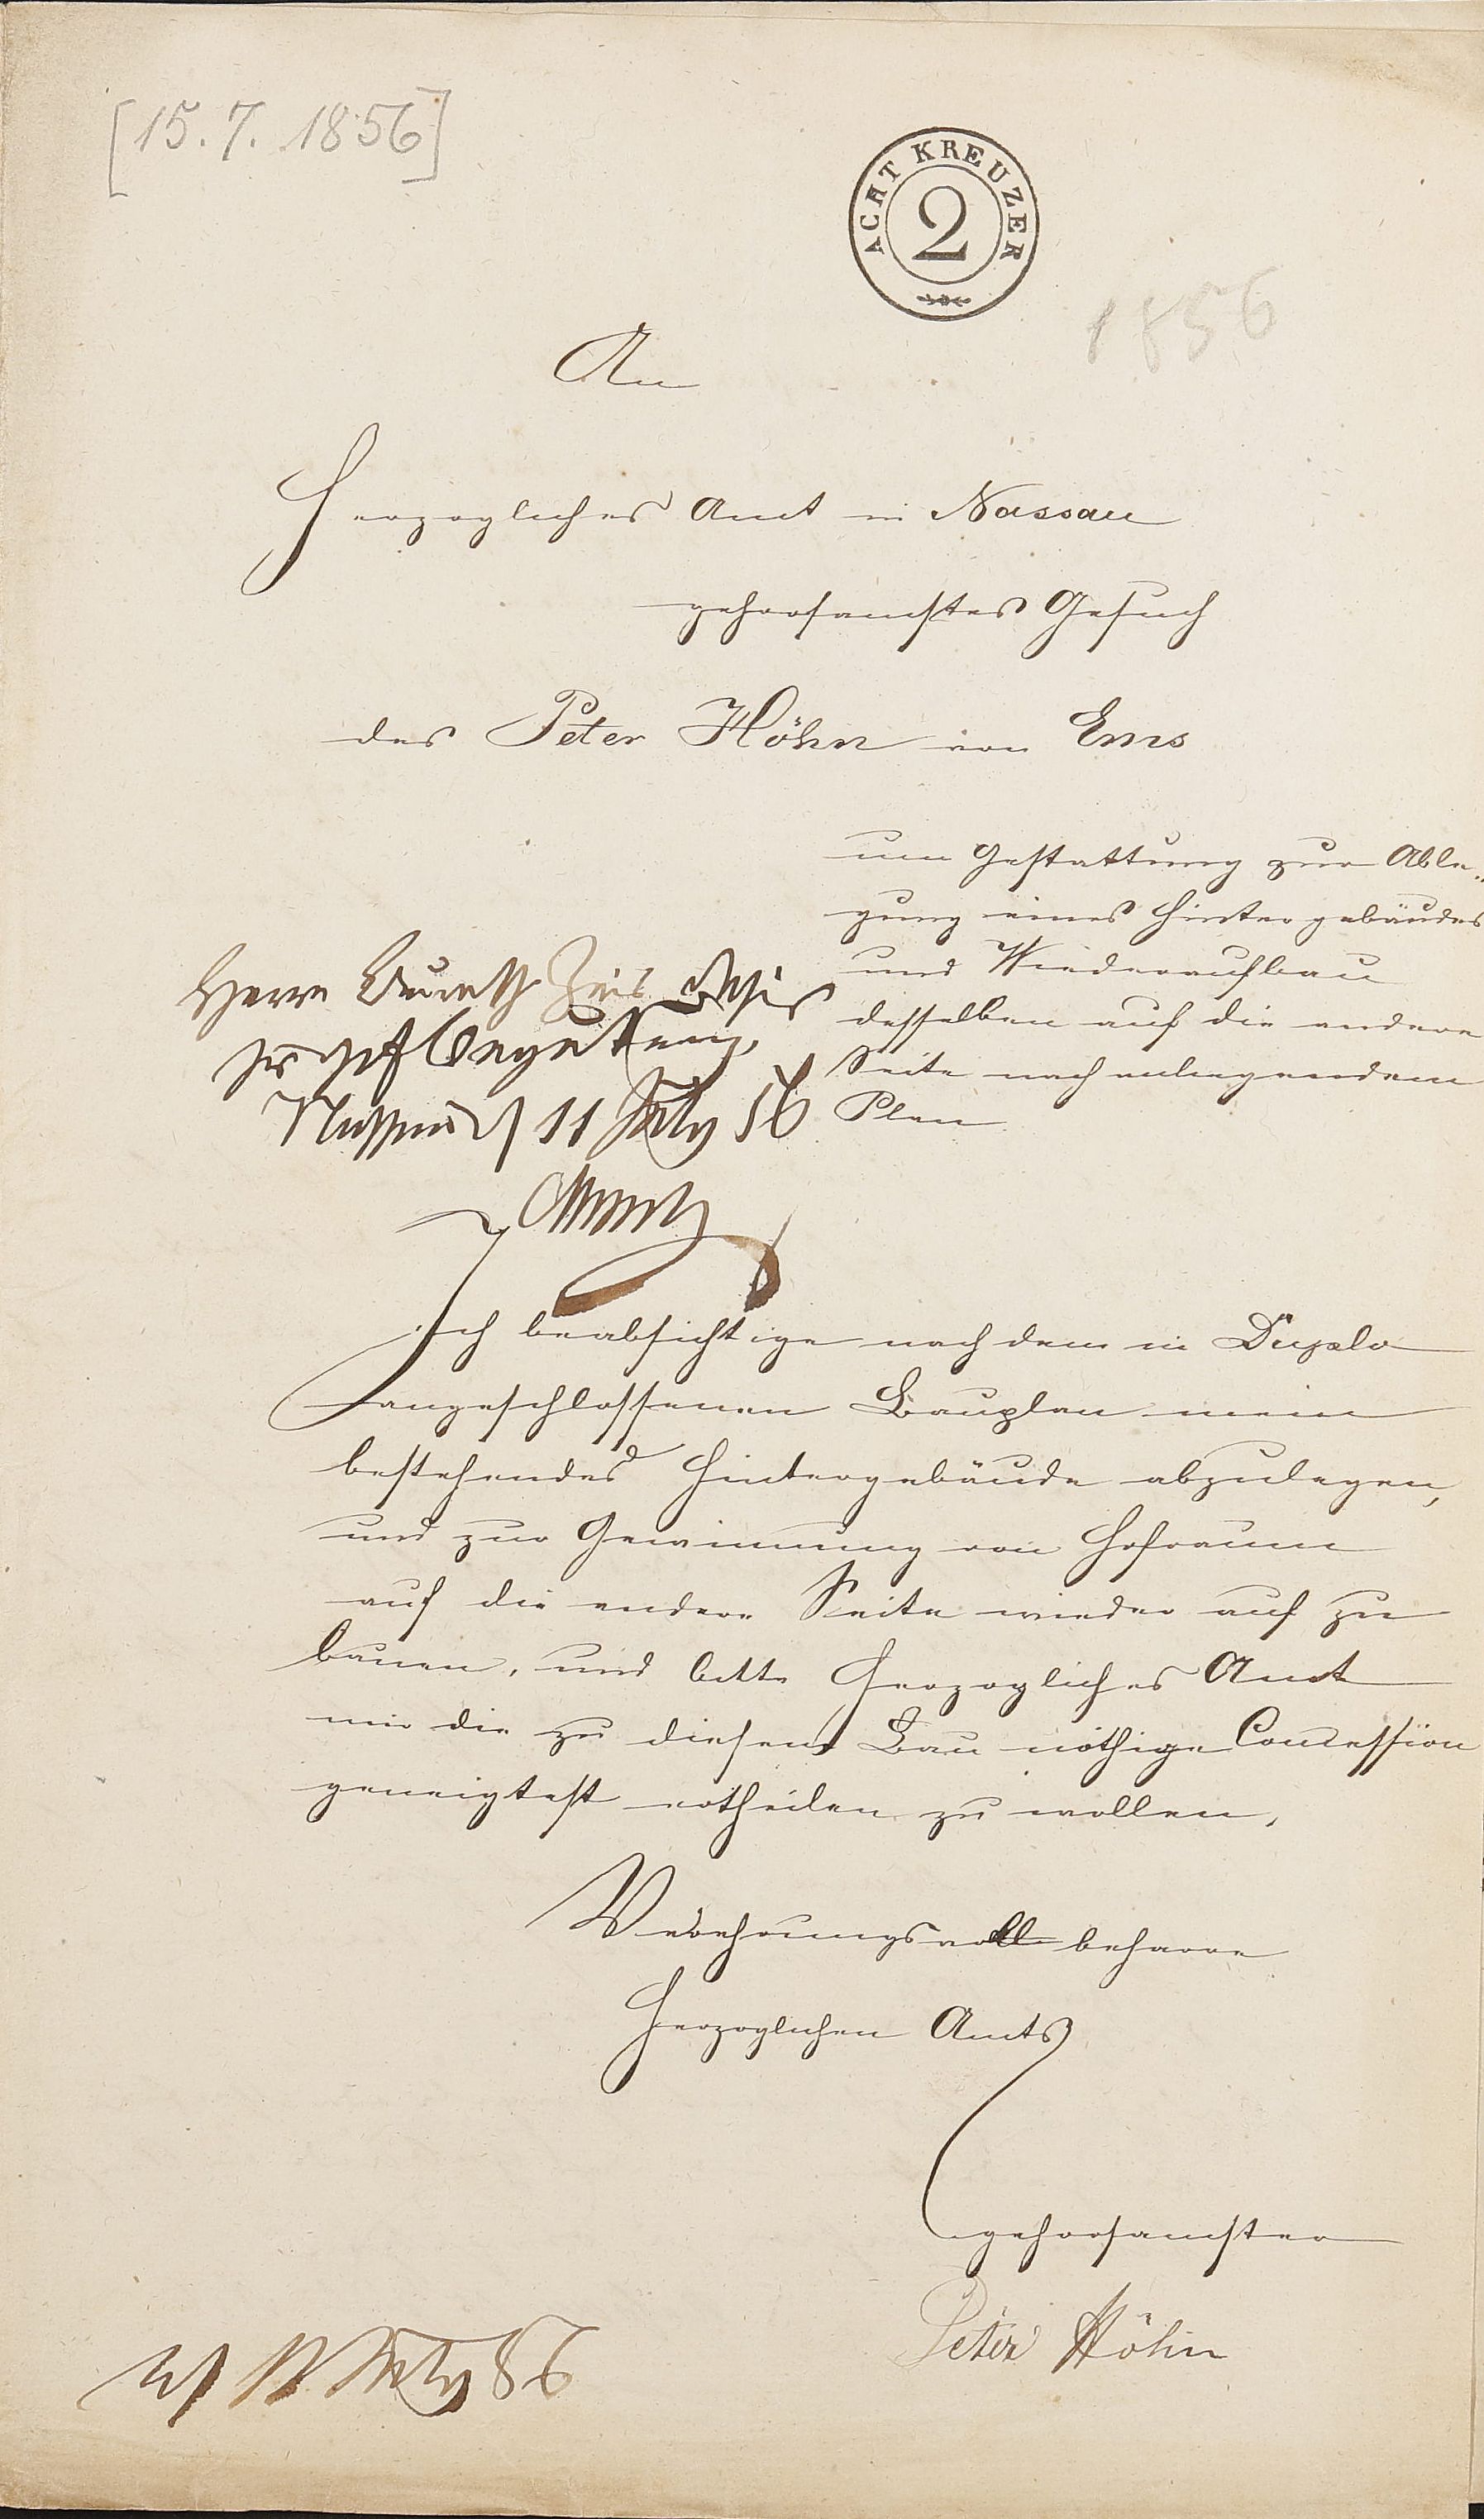 [15. 7. 1856]
ACHT KREUZER
2
1856
An
Herzogliches Amt in Nassau
gehorsamstes Gesuch
des Peter Höhn von Ems
um Gestattung zur Able„
gung eines Hintergebäudes
und Wiederaufbau
desselben auf die andere
Seite nach anliegendem
Plan
Herrn Baurath
zur gef Begutachtung,
Nassau d 11 July 56
Ich beabsichtige nach dem in Duplo
angeschlossenen Bauplan mein
bestehendes Hintergebäude abzulegen,
und zur Gewinnung von Hofraum
auf die andere Seite wieder auf zu
bauen, und bitte Herzogliches Amt
mir die zu diesem Bau nöthige Concession
geneigtest ertheilen zu wollen,
Verehrungsvoll beharre
Herzoglichen Amts
gehorsamster
Peter Höhn
July 56